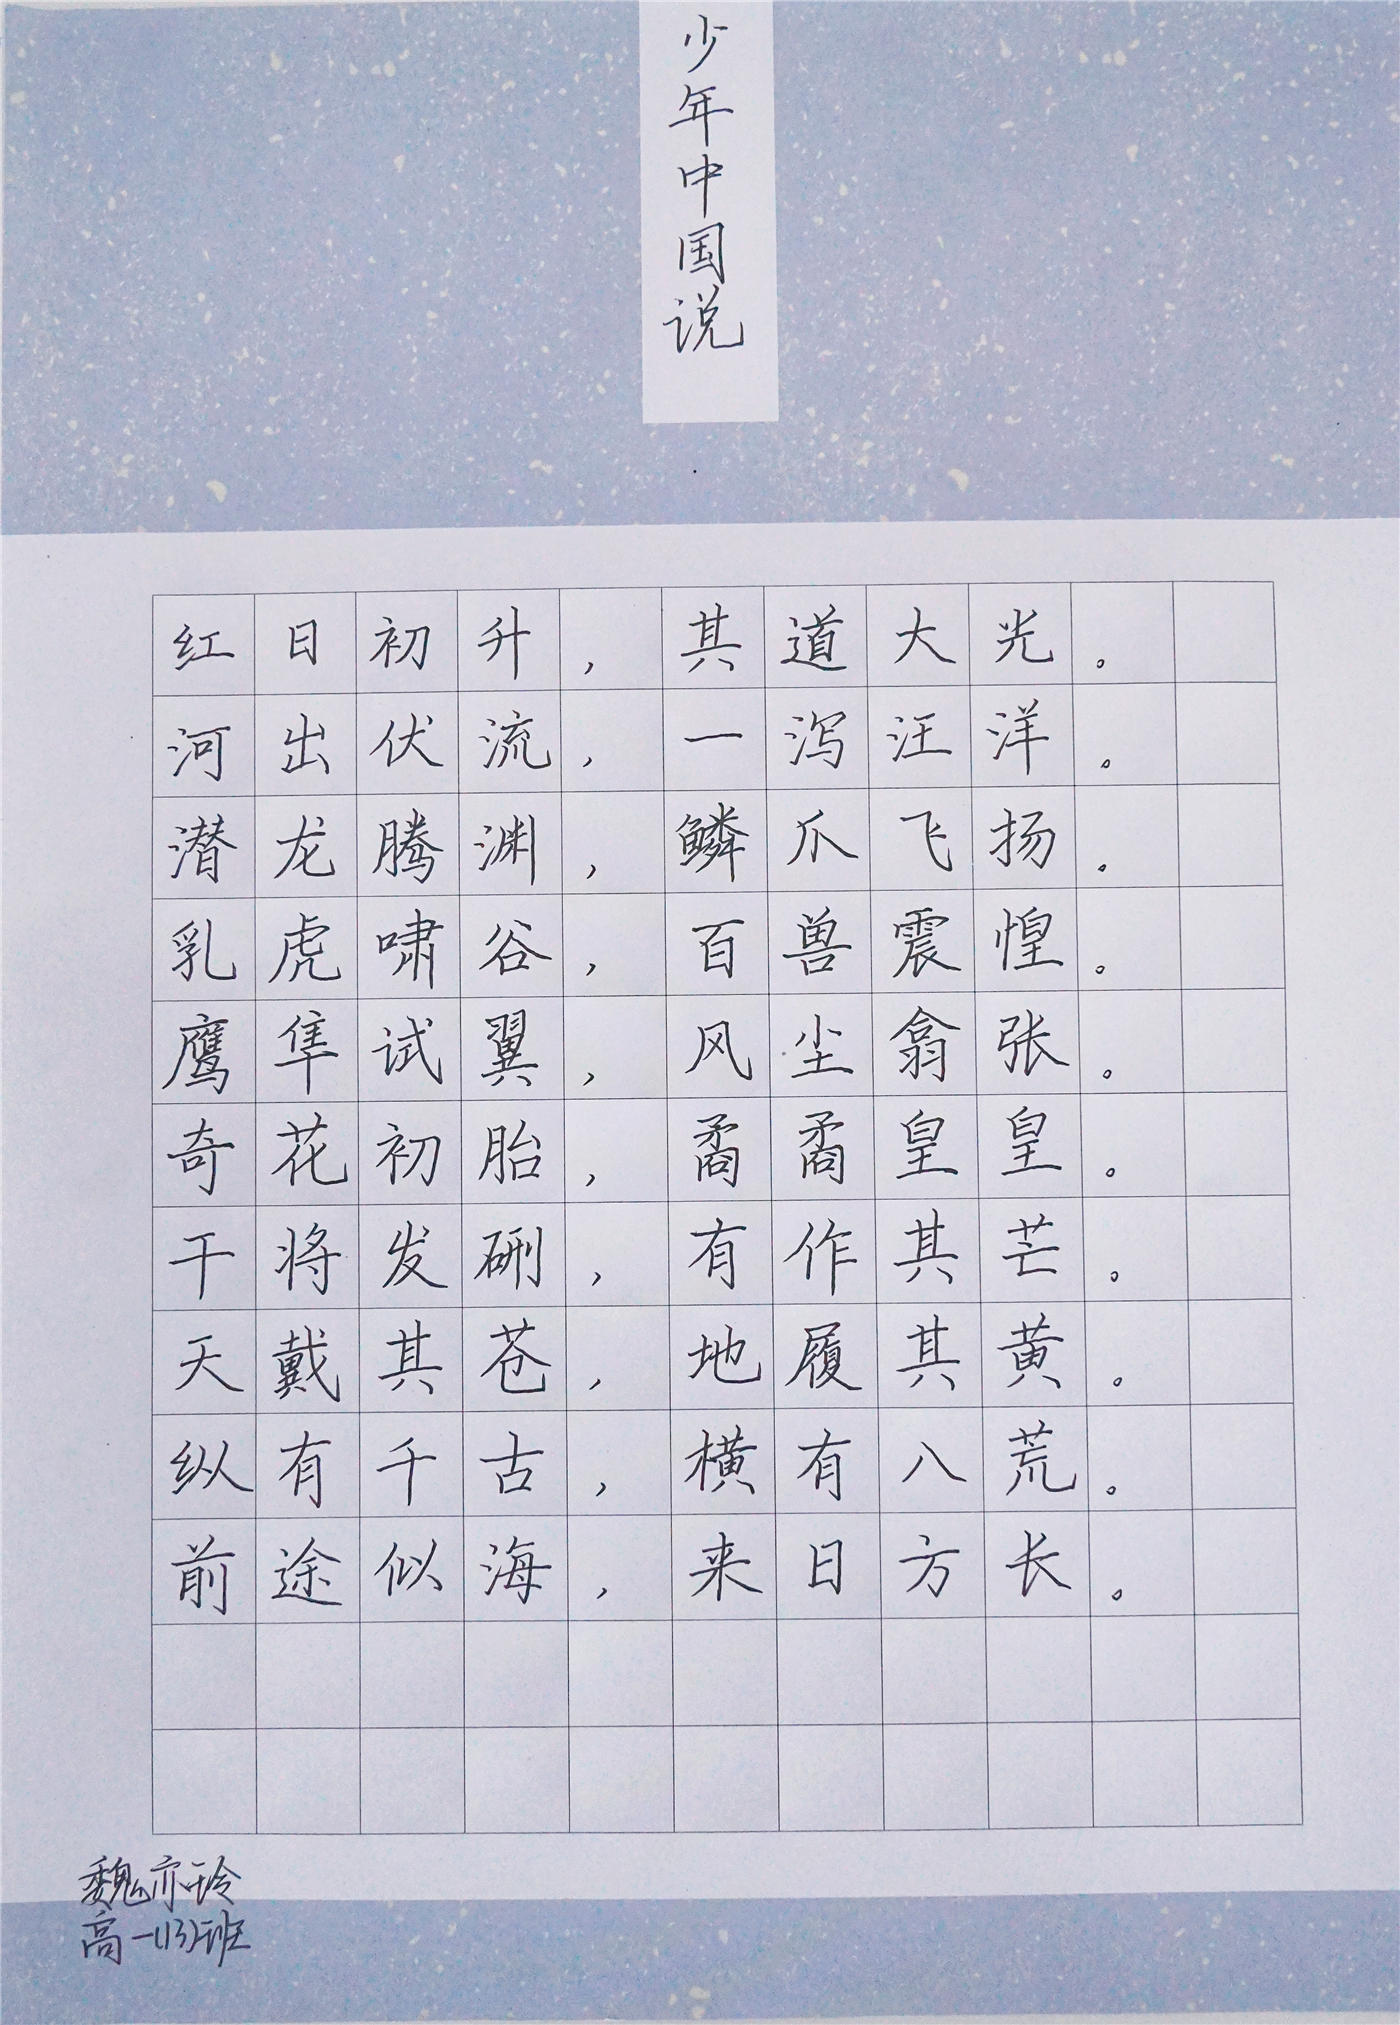 少年中国说
红日初升，其道大光。
河出伏流，一泻汪洋。
潜龙腾渊，鳞爪飞扬。
乳虎啸谷，百兽震惶。
鹰隼试翼，风尘翕张。
奇花初胎，矞矞皇皇。
干将发硎，有作其芒。
天戴其苍，地履其黄。
纵有千古，横有八荒。
前途似海，来日方长。
魏亦玲
高一(13)班